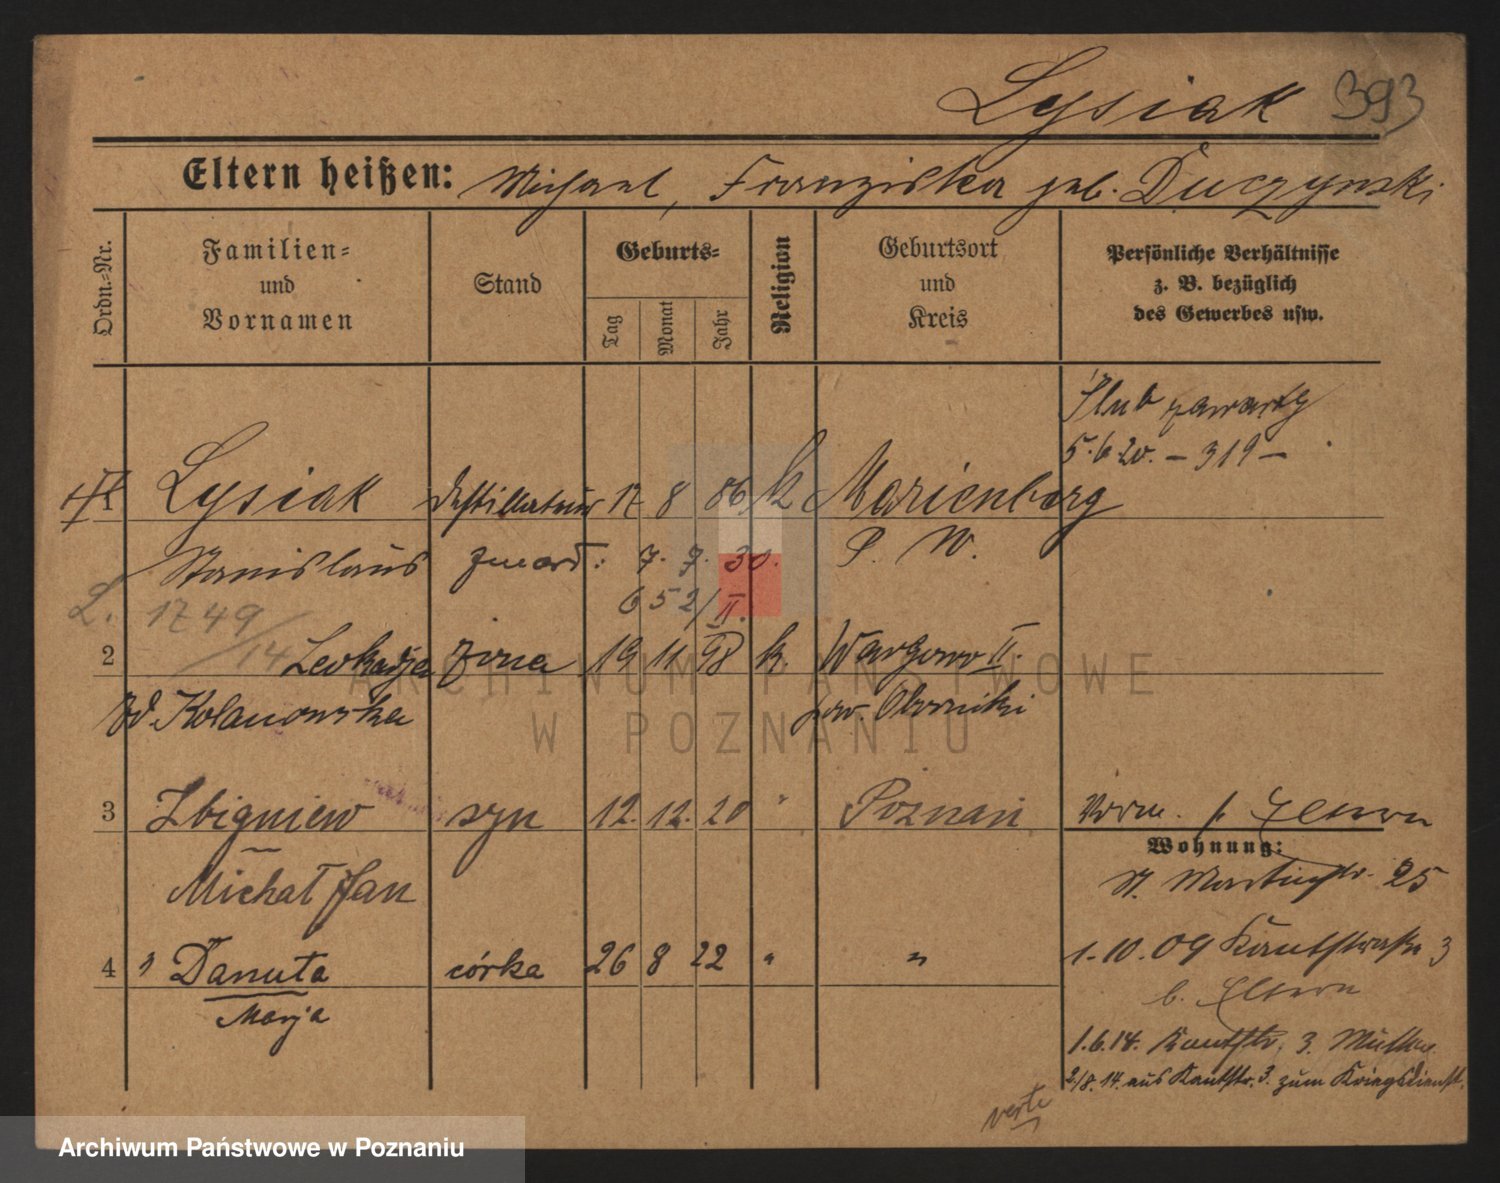 Lysiak 393
Eltern heißen: Michael, Franziska geb. Duczynski
Ordn.-Nr.
Familien- und Vornamen
Stand
Geburts-
Tag
Monat
Jahr
Religion
Geburtsort und Kreis
Persönliche Verhältnisse z. B. bezüglich des Gewerbes usw.
Ślub zawarty
5.6.20. – 319 –
1 Lysiak Destillateur 17 8 86 k Marienberg
Stanislaus zmarł: 7. 7. 30. P. W.
652/II.
L. 1749/14
2 Leokadja żona 19 11 98 k. Wargowo II.
zd. Kolanowska pow. Oborniki
3 Zbigniew syn 12. 12. 20 " Poznań
Michał Jan
4 Danuta córka 26 8 22 " "
Marja
Vorm. Eltern
Wohnung:
St. Martinstr. 25
1.10.09 Kantstrasse 3
b. Eltern
1.6.14. Kantstr. 3. Mutter
2/8.14. aus Kantstr. 3. zum Kriegsdienst.
verte
ARCHIWUM PAŃSTWOWE
W POZNANIU
Archiwum Państwowe w Poznaniu